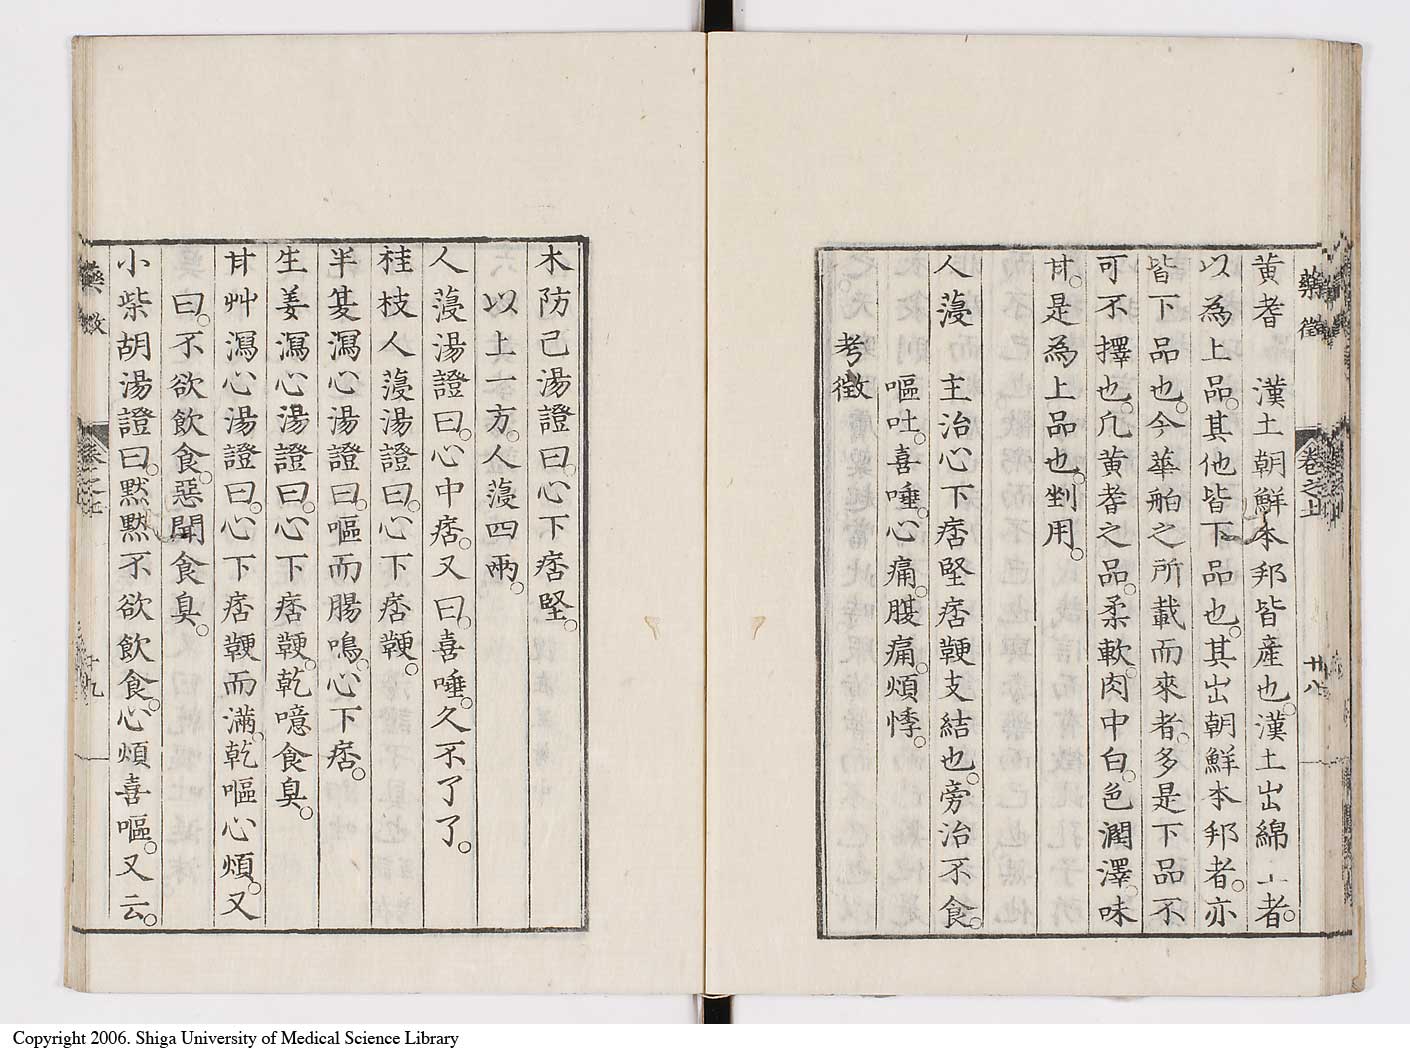 藥徵
卷之上
廿八
黃耆 漢土朝鮮本邦皆産也。漢土出綿上者。
以為上品。其他皆下品也。其出朝鮮本邦者。亦
皆下品也。今華舶之所載而來者。多是下品不
可不擇也。凡黃耆之品。柔軟。肉中白。色潤澤。味
甘。是為上品也。剉用。
人蓡 主治心下痞堅痞鞕支結也。旁治不食。
嘔吐。喜唾。心痛。腹痛。煩悸。
考徵
木防己湯證曰。心下痞堅。
以上一方。人蓡四兩。
人蓡湯證曰。心中痞。又曰。喜唾。久不了了。
桂枝人蓡湯證曰。心下痞鞕。
半夏瀉心湯證曰。嘔而腸鳴。心下痞。
生姜瀉心湯證曰。心下痞鞕。乾噫食臭。
甘艸瀉心湯證曰。心下痞鞕而滿。乾嘔心煩。又
曰。不欲飲食。惡聞食臭。
小柴胡湯證曰。默默不欲飲食。心煩喜嘔。又云。
藥徵
卷之上
十九
Copyright 2006. Shiga University of Medical Science Library